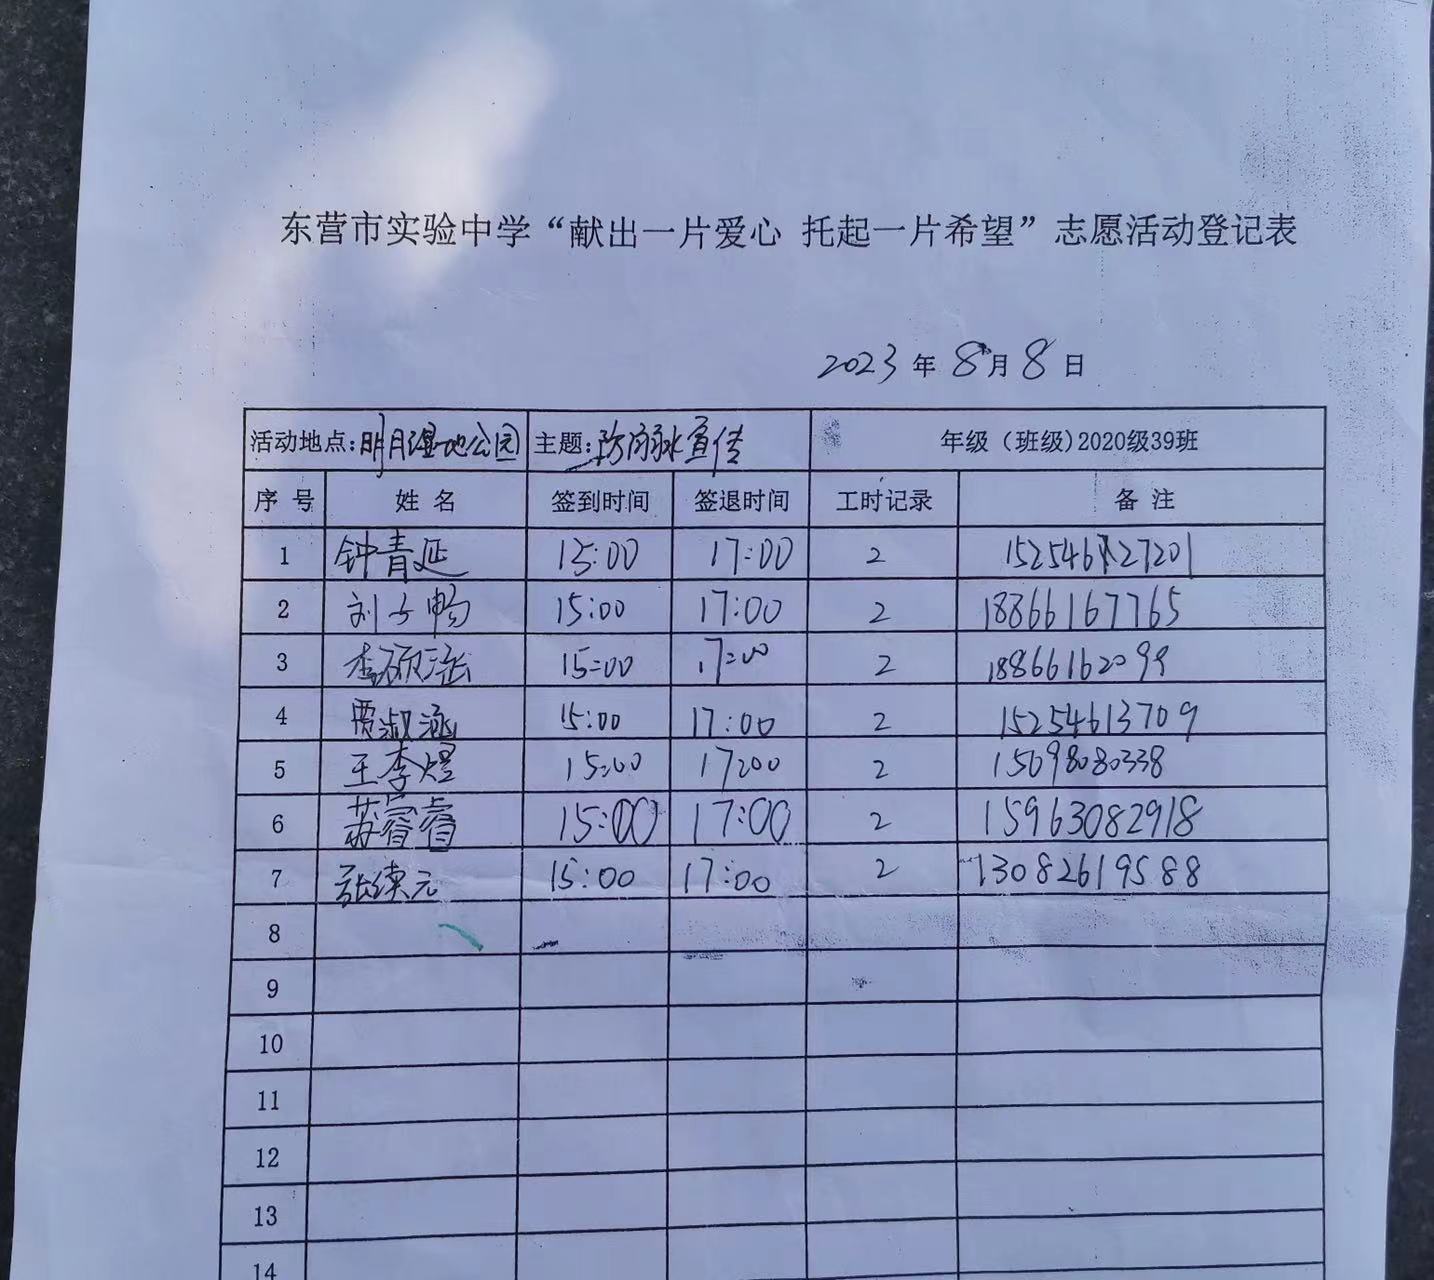 东营市实验中学“献出一片爱心 托起一片希望”志愿活动登记表
2023年8月8日
活动地点:明月湿地公园 主题:防溺水宣传 年级（班级)2020级39班
序 号 姓 名 签到时间 签退时间 工时记录 备 注
1 钟青延 15:00 17:00 2 15254627201
2 刘子畅 15:00 17:00 2 18866167765
3 李硕 15:00 17:00 2 18866162099
4 贾淑涵 15:00 17:00 2 15254613709
5 王李煜 15:00 17:00 2 15698080338
6 苏睿睿 15:00 17:00 2 15963082918
7 张续元 15:00 17:00 2 13082619588
8
9
10
11
12
13
14